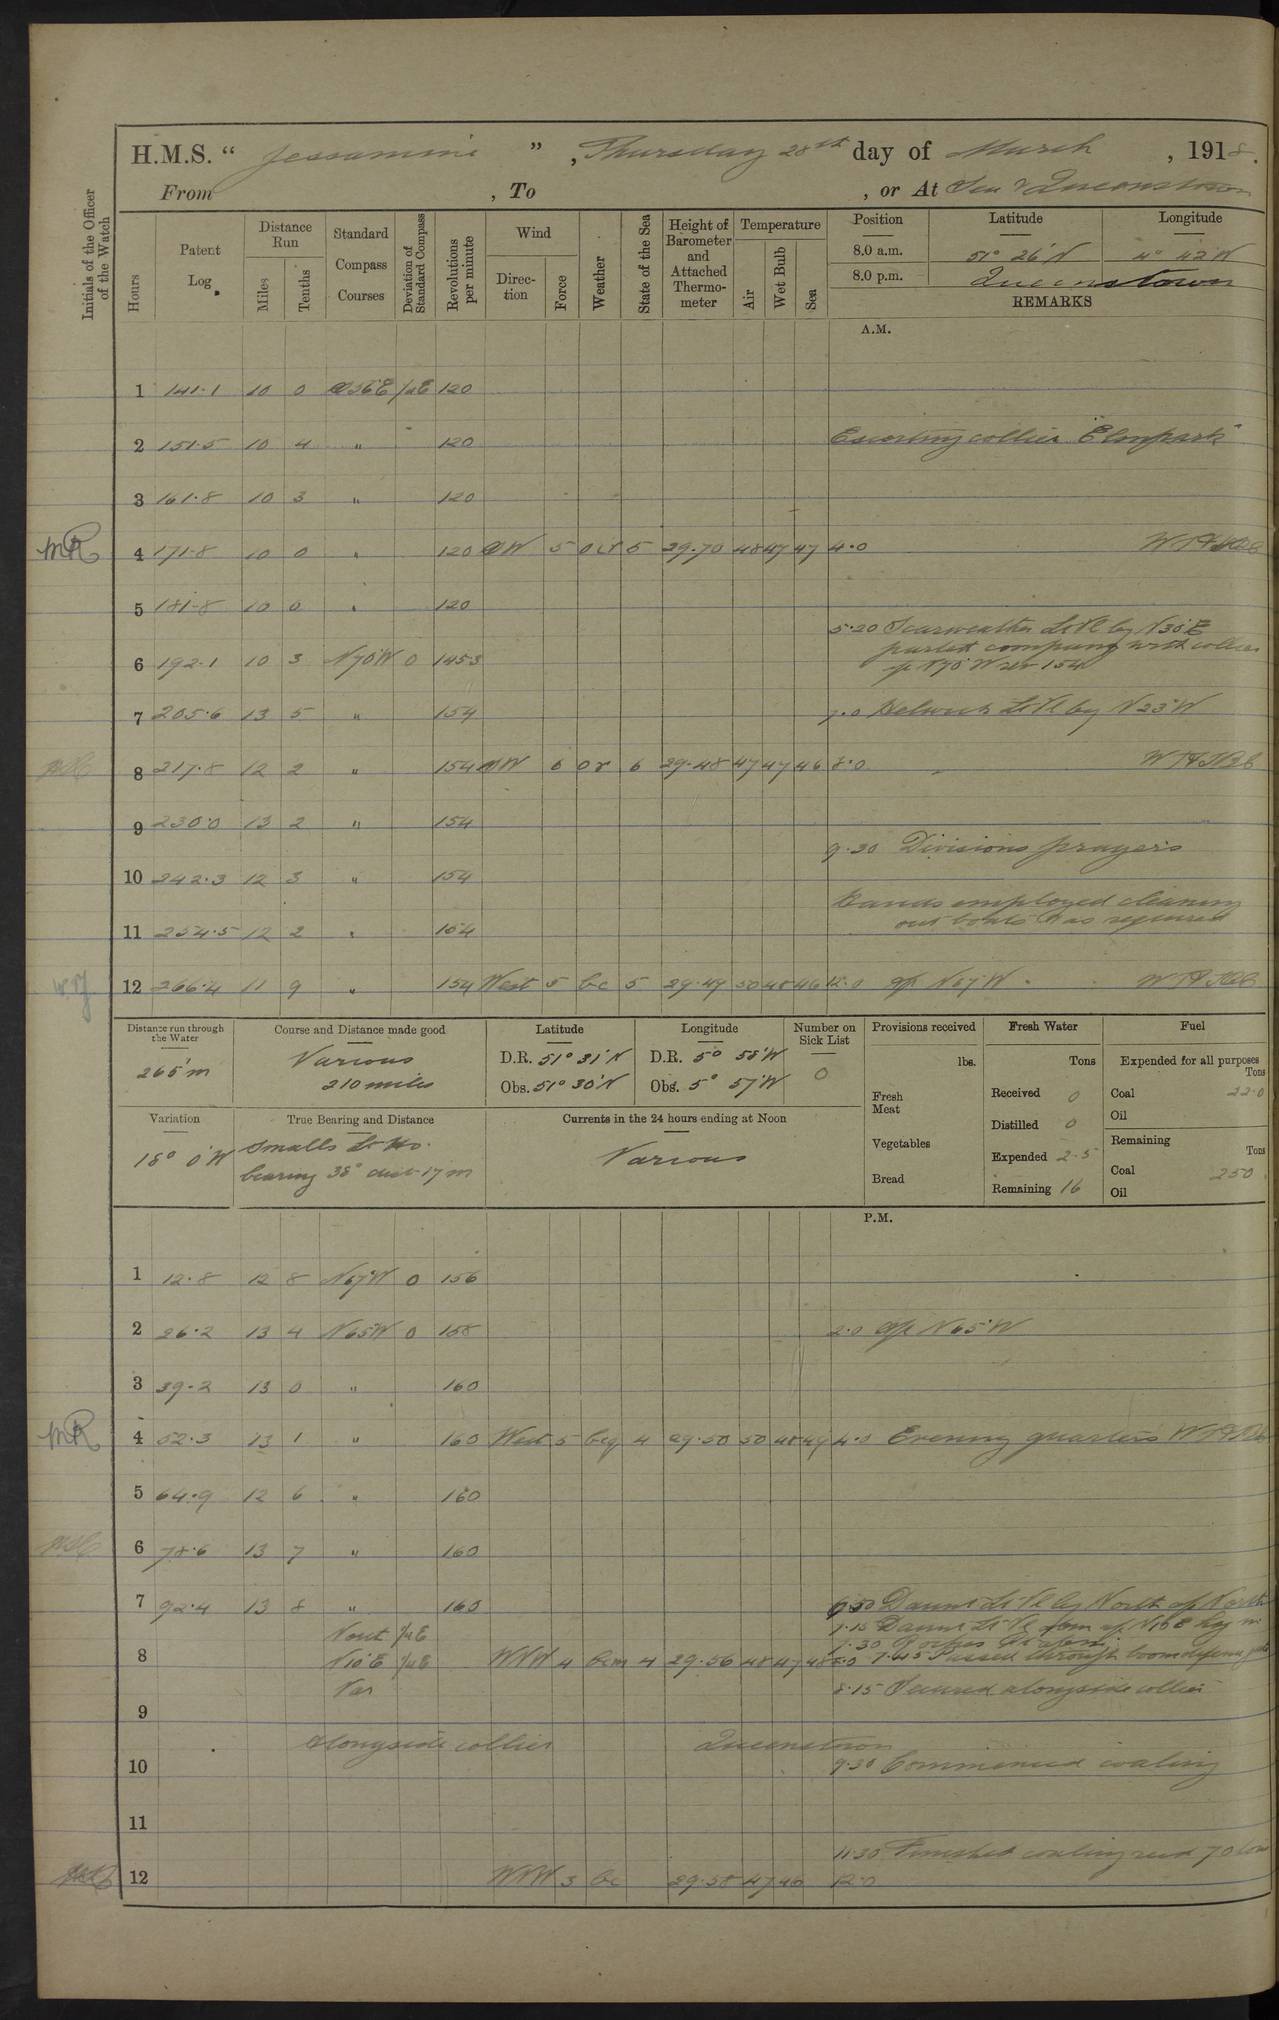 H.M.S. “ Jessamine ” , Thursday 28th day of March , 1918.
From , To , or At Sea & Queenstown
Initials of the Officer of the Watch
Hours
Patent Log
Distance Run
Miles Tenths
Standard Compass Courses
Deviation of Standard Compass
Revolutions per minute
Wind
Direction Force
Weather
State of the Sea
Height of Barometer and Attached Thermometer
Temperature
Air Wet Bulb Sea
Position Latitude Longitude
8.0 a.m. 51° 26' N 4° 42' W
8.0 p.m. Queenstown
REMARKS
A.M.
1 141.1 10 0 120
2 151.5 10 4 " 120 Escorting collier "Elmpark"
3 161.8 10 3 " 120
4 171.8 10 0 " 120 5 5 29.70 48 47 47 4.0
5 181.8 10 0 " 120
5.20 Scarweather Lt Vl by N 30° E
parted company with collier
6 192.1 10 3 N70°W 0
7 205.6 13 5 " 154 7.0 Helwick Lt Vl by N 23° W
8 217.8 12 2 " 154 6 or 6 29.48 47 47 46 8.0
9 230.0 13 2 " 154
9.30 Divisions prayers
10 242.3 12 3 " 154
Hands employed cleaning
out boats & as required
11 254.5 12 2 " 154
12 266.4 11 9 " 154 West 5 bc 5 29.49 50 48 46 12.0 a/c N67°W
Distance run through the Water
265' m
Course and Distance made good
Various
210 miles
Latitude
D.R. 51° 31' N
Obs. 51° 30' N
Longitude
D.R. 5° 58' W
Obs. 5° 57' W
Number on Sick List
0
Provisions received
lbs.
Fresh Meat
Vegetables
Bread
Fresh Water
Tons
Received 0
Distilled 0
Expended 2.5
Remaining 16
Fuel
Expended for all purposes
Tons
Coal 22.0
Oil
Remaining
Tons
Coal 250
Oil
Variation
18° 0' W
True Bearing and Distance
Smalls Lt Ho.
bearing 38° dist 17 m
Currents in the 24 hours ending at Noon
Various
P.M.
1 12.8 12 8 N67°W 0 156
2 26.2 13 4 N65°W 0 158 2.0 a/c N65°W
3 39.2 13 0 " 160
4 52.3 13 1 " 160 West 5 bcq 4 29.50 50 48 49 4.0 Evening quarters
5 64.9 12 6 " 160
6 78.6 13 7 " 160
7 92.4 13 8 " 160 Daunt Lt Vl by North a/c North
7.15 Daunt Lt Vl
7.30
8 N10°E WNW 4 bcm 4 29.56 48 47 48 8.0 7.45 Passed through boom defence
Var 8.15 Secured alongside collier
9
Alongside collier Queenstown
10 9.30 Commenced coaling
11
11.30 Finished coaling recd 70 tons
12 WNW 3 bc 29.58 47 46 12.0